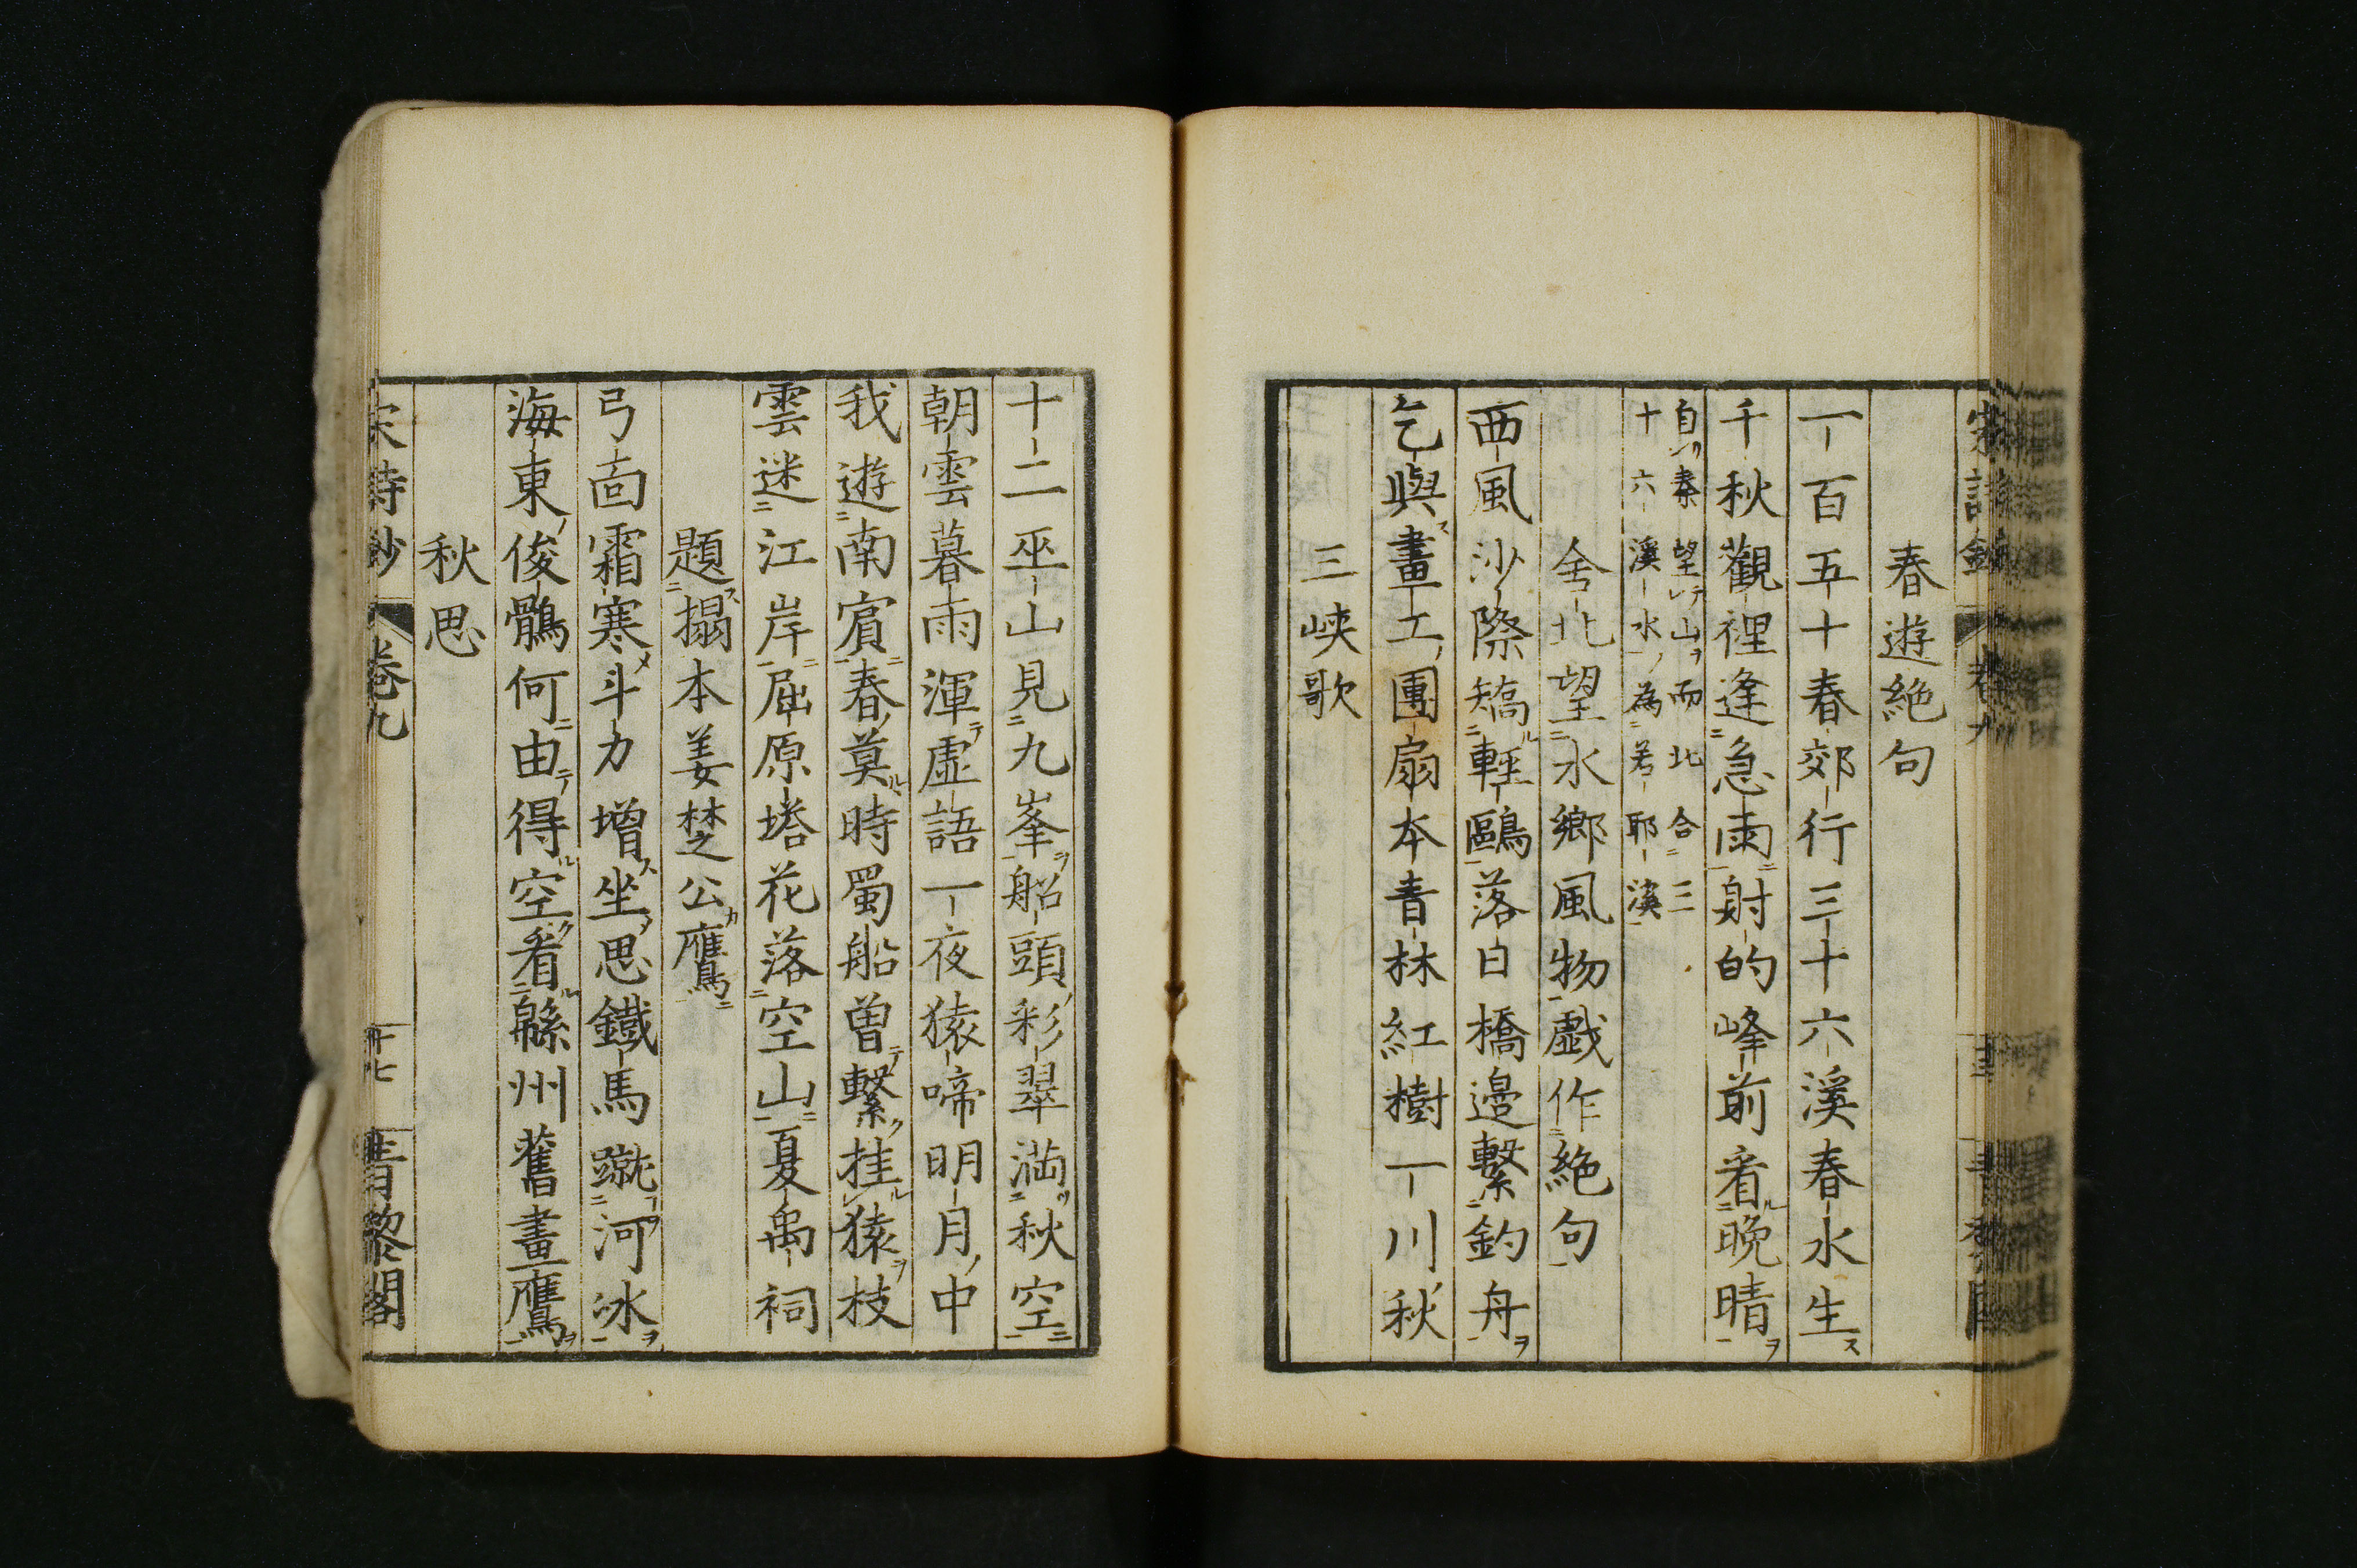 春遊絶句
一百五十春郊行三十六溪春水生
千秋觀裡逢急雨射的峰前看晩晴
自秦望山而北合三
十六溪水為若耶溪
舍北望水鄉風物戯作絶句
西風沙際矯輕鷗落日橋邉繫釣舟
乞與畫工團扇本青林紅樹一川秋
三峡歌
十二巫山見九峯船頭彩翠滿秋空
朝雲暮雨渾虛語一夜猿啼明月中
我遊南賔春莫時蜀船曽繫挂猿枝
雲迷江岸屈原塔花落空山夏禹祠
題搨本姜楚公鷹
弓面霜寒斗力增坐思鐵馬蹴河冰
海東俊鶻何由得空看緜州舊畫鷹
秋思
宋詩鈔 卷九 十七 青藜閣